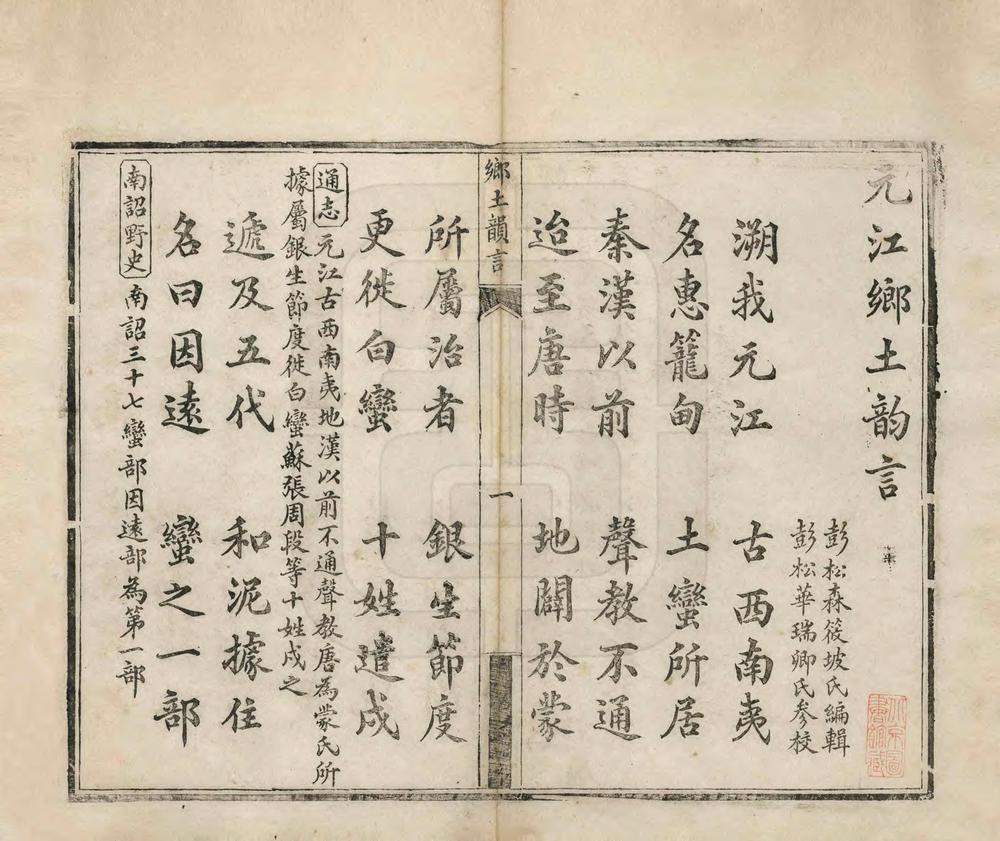 元江鄉土韵言
彭松森筱坡氏編輯
彭松華瑞卿氏参校
溯我元江　古西南夷
名惠籠甸　土蠻所居
秦漢以前　聲教不通
迨至唐時　地闢於蒙
鄉土韻言
一
所屬治者　銀生節度
更徙白蠻　十姓遣戍
通志　元江古西南夷地漢以前不通聲教唐為蒙氏所
據屬銀生節度徙白蠻蘇張周段等十姓戍之
遞及五代　和泥據住
名曰因遠　蠻之一部
南詔野史　南詔三十七蠻部因遠部為第一部